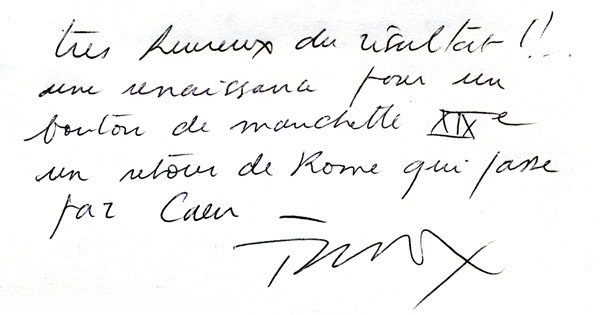 très heureux du résultat !!
une renaissance pour un
bouton de manchette XIXe
un retour de Rome qui passe
par Caen